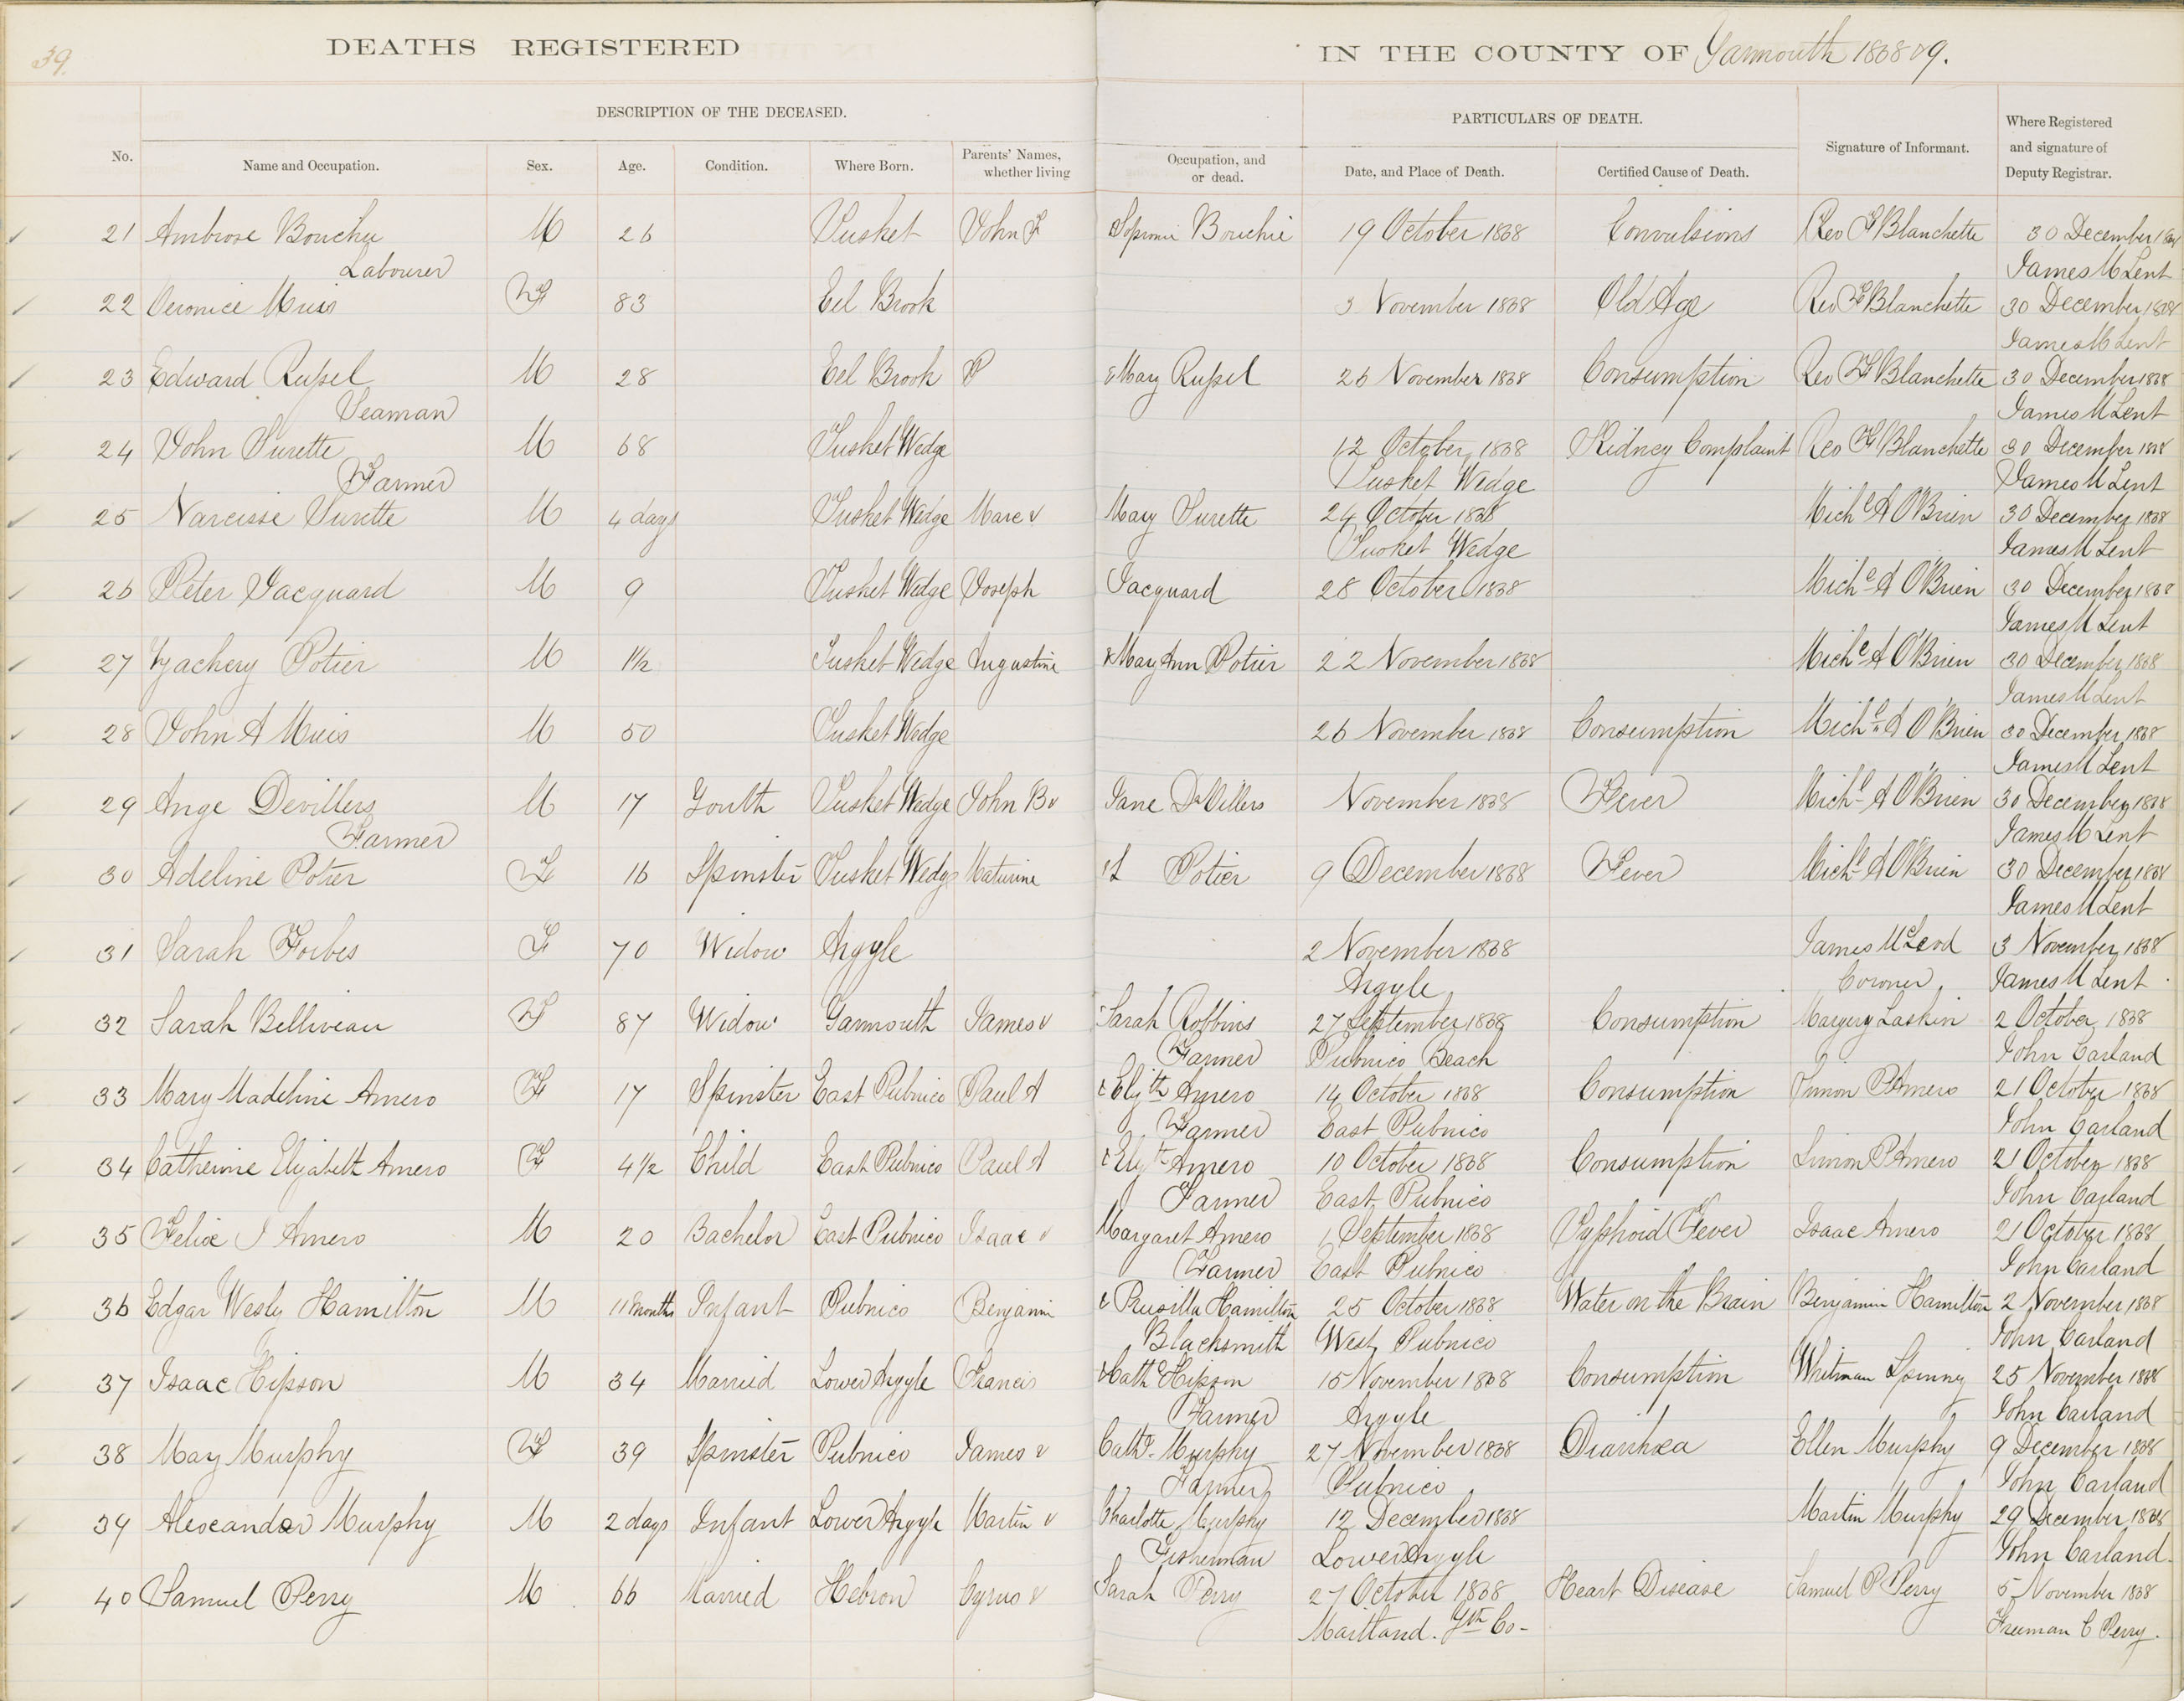 39.
DEATHS REGISTERED IN THE COUNTY OF Yarmouth 1868 & 9.
DESCRIPTION OF THE DECEASED. PARTICULARS OF DEATH. Where Registered and signature of Deputy Registrar.
No. Name and Occupation. Sex. Age. Condition. Where Born. Parents' Names, whether living Occupation, and or dead. Date, and Place of Death. Certified Cause of Death. Signature of Informant.
21 Ambrose Bouchie M 26 Tusket John F Bouchie 19 October 1868 Convulsions Rev F Blanchette 30 December
Labourer James M Lent
22 Veronice Muis F 83 Eel Brook 3 November 1868 Old Age Rev F Blanchette 30 December 1868
James M Lent
23 Edward Russel M 28 Eel Brook P & Mary Russel 26 November 1868 Consumption Rev F Blanchette 30 December 1868
Seaman James M Lent
24 John Surette M 68 Tusket Wedge 12 October 1868 Kidney Complaint Rev F Blanchette 30 December 1868
Farmer Tusket Wedge James M Lent
25 Narcisse Surette M 4 days Tusket Wedge Marc & Mary Surette 24 October 1868 Mich A O'Brien 30 December 1868
Tusket Wedge James M Lent
26 Peter Jacquard M 9 Tusket Wedge Joseph Jacquard 28 October 1868 Mich A O'Brien 30 December 1868
James M Lent
27 Zachery Potier M 1½ Tusket Wedge Augustine & Mary Ann Potier 22 November 1868 Mich A O'Brien 30 December 1868
James M Lent
28 John A Muis M 50 Tusket Wedge 26 November 1868 Consumption Mich A O'Brien 30 December 1868
James M Lent
29 Ange Devillers M 17 Youth Tusket Wedge John B & Jane DeVillers November 1868 Fever Mich A O'Brien 30 December 1868
Farmer James M Lent
30 Adeline Potier F 16 Spinster Tusket Wedge Maturine & L Potier 9 December 1868 Fever Mich A O'Brien 30 December 1868
James M Lent
31 Sarah Forbes F 70 Widow Argyle 2 November 1868 James McLeod 3 November 1868
Argyle Coroner James M Lent
32 Sarah Belliveau F 87 Widow Yarmouth James & Sarah Robbins 27 September 1868 Consumption Margery Larkin 2 October 1868
Farmer Pubnico Beach John Carland
33 Mary Madeline Amero F 17 Spinster East Pubnico Paul A & Elizth Amero 14 October 1868 Consumption Simon P Amero 21 October 1868
Farmer East Pubnico John Carland
34 Catherine Elizabeth Amero F 4½ Child East Pubnico Paul A & Elizth Amero 10 October 1868 Consumption Simon P Amero 21 October 1868
Farmer East Pubnico John Carland
35 Felix J Amero M 20 Bachelor East Pubnico Isaac & Margaret Amero 1 September 1868 Typhoid Fever Isaac Amero 21 October 1868
Farmer East Pubnico John Carland
36 Edgar Wesly Hamilton M 11 months Infant Pubnico Benjamin & Prusilla Hamilton 25 October 1868 Water on the Brain Benjamin Hamilton 2 November 1868
Blacksmith West Pubnico John Carland
37 Isaac Hipson M 34 Married Lower Argyle Francis & Cathe Hipson 15 November 1868 Consumption Whitman Spinney 25 November 1868
Farmer Argyle John Carland
38 May Murphy F 39 Spinster Pubnico James & Cathe Murphy 27 November 1868 Diarrhœa Ellen Murphy 9 December 1868
Farmer Pubnico John Carland
39 Alexander Murphy M 2 days Infant Lower Argyle Martin & Charlotte Murphy 12 December 1868 Martin Murphy 29 December 1868
Fisherman Lower Argyle John Carland
40 Samuel Perry M 66 Married Hebron Cyrus & Sarah Perry 27 October 1868 Heart Disease Samuel P Perry 5 November 1868
Maitland. Yth Co- Freeman C Perry.